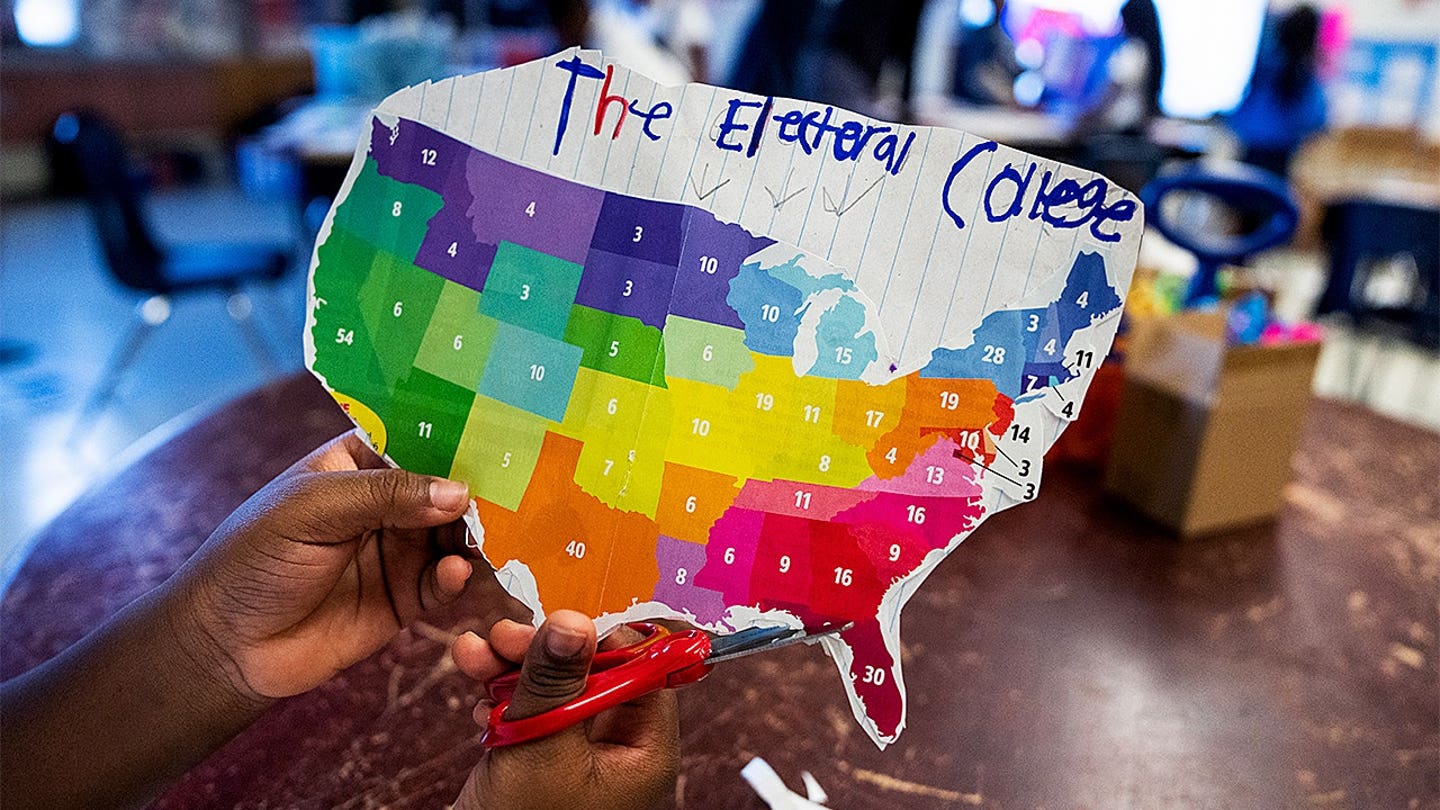 The Electoral College
12
4
3
8
4
10
3
3
4
3
4
28
10
15
11
7
4
54
6
6
10
5
6
19
11
17
19
14
11
5
6
7
8
10
8
4
10
13
3
3
6
11
16
40
8
6
9
16
9
30